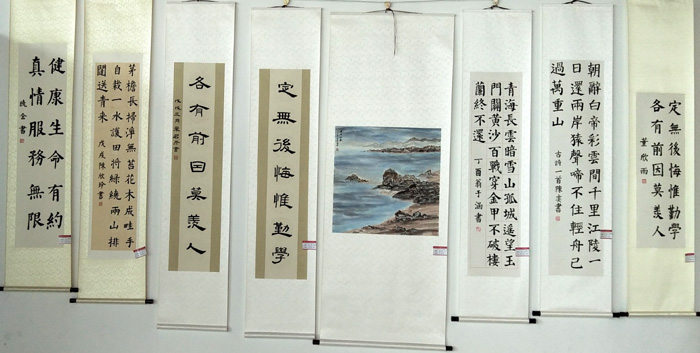 定無後悔惟勤學
各有前因莫羨人
董欣雨
朝辭白帝彩雲間千里江陵一
日還兩岸猿聲啼不住輕舟已
過萬重山
古詩一首陳書
青海長雲暗雪山孤城遙望玉
門關黃沙百戰穿金甲不破樓
蘭終不還
丁酉翁于涵書
定無後悔惟勤學
各有前因莫羨人
茅檐長掃淨無苔花木成畦手
自栽一水護田將綠繞兩山排
闥送青来
戊戌陳欣玲書
健康生命有約
真情服務無限